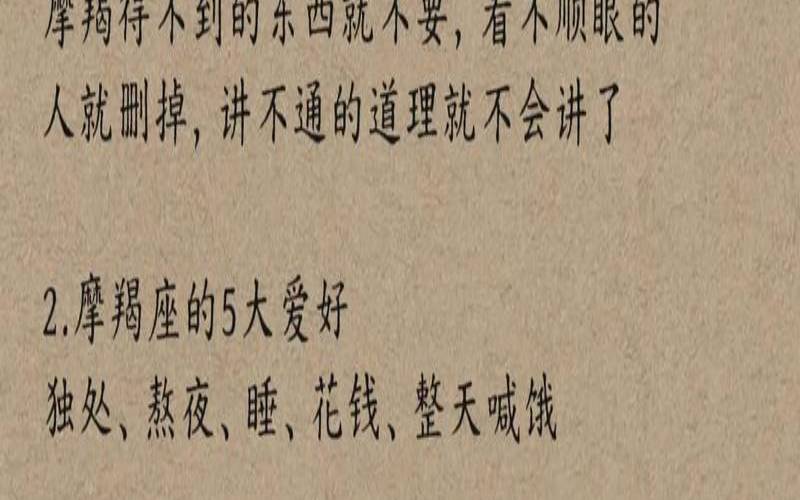 摩羯得不到的东西就不要，看不顺眼的
人就删掉，讲不通的道理就不会讲了
2.摩羯座的5大爱好
独处、熬夜、睡、花钱、整天喊饿